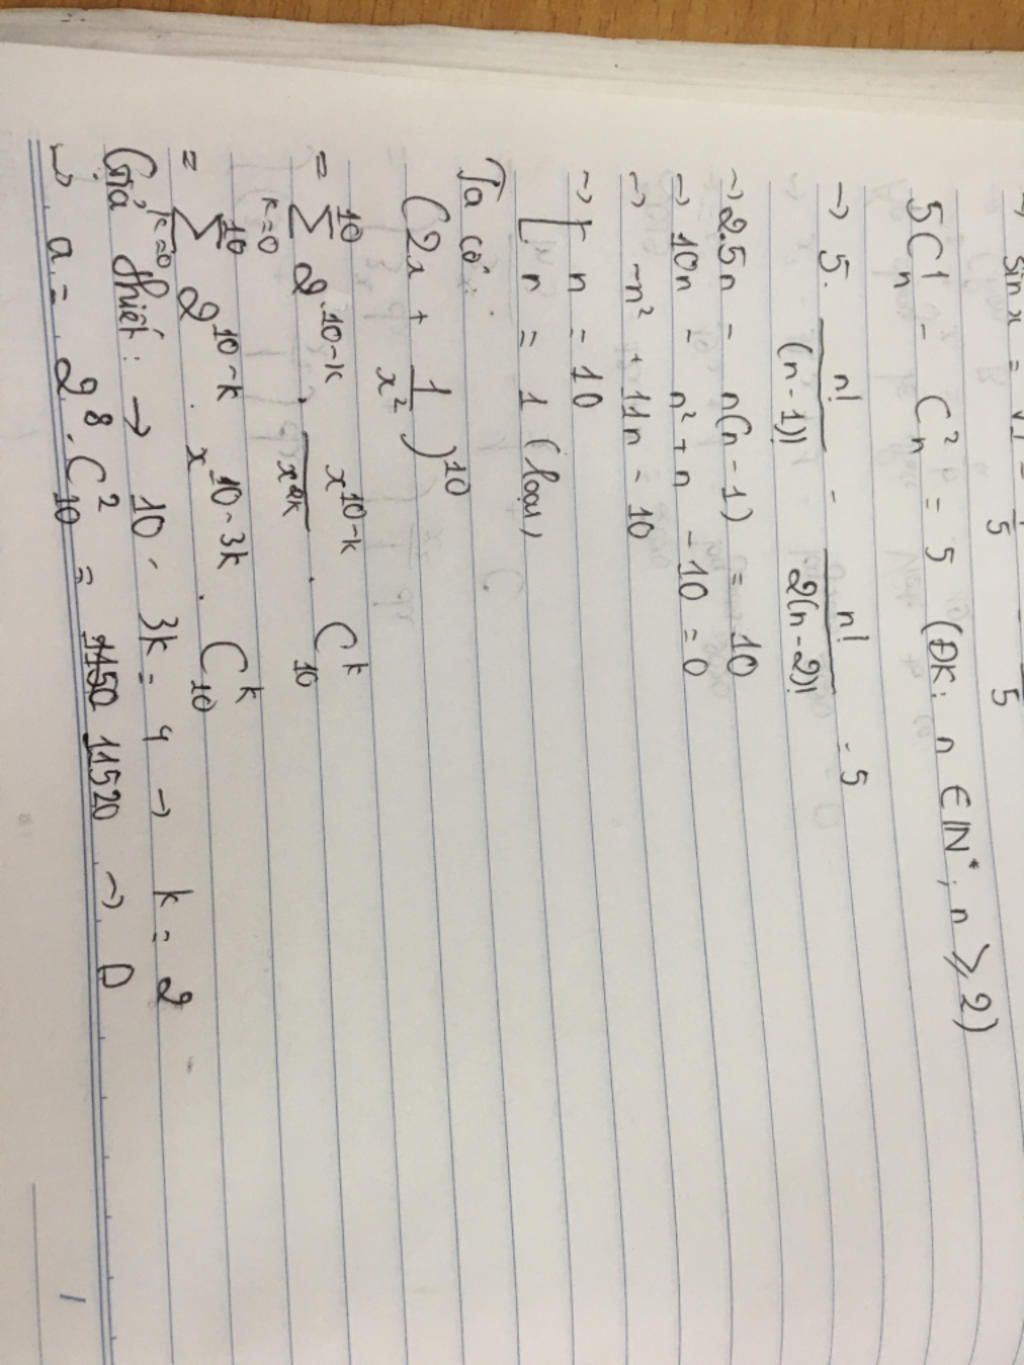 → sin x = 
5C¹ₙ - C²ₙ = 5 (ĐK: n ∈ ℕ*; n ≥ 2)
→ 5. n!/(n-1)! - n!/2(n-2)! = 5
→ 2.5n - n(n-1) = 10
→ 10n - n² + n - 10 = 0
→ -n² + 11n = 10
→ [ n = 10
[ n = 1 (loại)
Ta có:
(2x + 1/x²)¹⁰
= ∑ₖ₌₀¹⁰ 2¹⁰⁻ᵏ . x¹⁰⁻ᵏ/x²ᵏ . Cᵏ₁₀
= ∑ₖ₌₀¹⁰ 2¹⁰⁻ᵏ . x¹⁰⁻³ᵏ . Cᵏ₁₀
Giả thiết: → 10 - 3k = 4 → k = 2
→ a = 2⁸ . C²₁₀ = 11520 → D